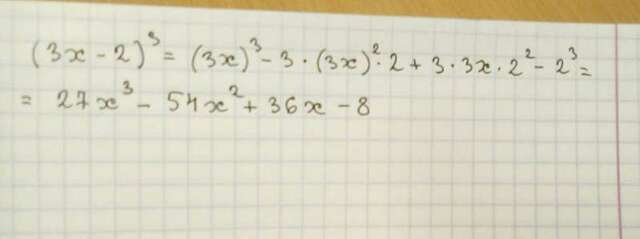 (3x - 2)³ = (3x)³ - 3 · (3x)² · 2 + 3 · 3x · 2² - 2³ =
= 27x³ - 54x² + 36x - 8